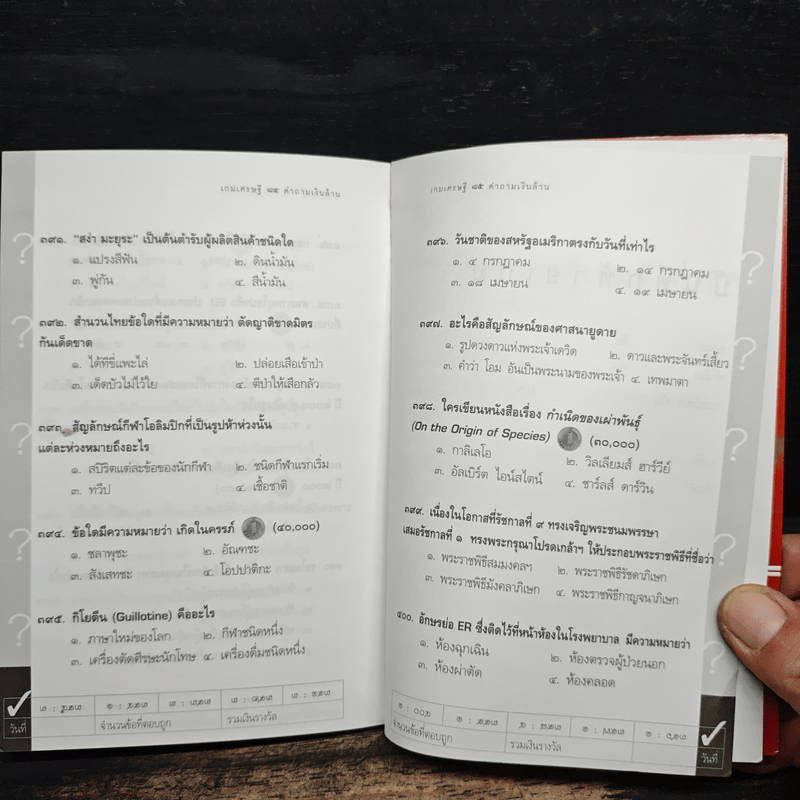 เกมเศรษฐี ๘๔ คำถามเงินล้าน
๓๙๑. “สง่า มะยุระ” เป็นต้นตำรับผู้ผลิตสินค้าชนิดใด
๑. แปรงสีฟัน ๒. ดินน้ำมัน
๓. พู่กัน ๔. สีน้ำมัน
๓๙๒. สำนวนไทยข้อใดที่มีความหมายว่า ตัดญาติขาดมิตร
กันเด็ดขาด
๑. ได้ทีขี่แพะไล่ ๒. ปล่อยเสือเข้าป่า
๓. เด็ดบัวไม่ไว้ใย ๔. ตีป่าให้เสือกลัว
๓๙๓. สัญลักษณ์กีฬาโอลิมปิกที่เป็นรูปห้าห่วงนั้น
แต่ละห่วงหมายถึงอะไร
๑. สปิริตแต่ละข้อของนักกีฬา ๒. ชนิดกีฬาแรกเริ่ม
๓. ทวีป ๔. เชื้อชาติ
๓๙๔. ข้อใดมีความหมายว่า เกิดในครรภ์ (๔๐,๐๐๐)
๑. ชลาพุชะ ๒. อัณฑชะ
๓. สังเสทชะ ๔. โอปปาติกะ
๓๙๕. กิโยตีน (Guillotine) คืออะไร
๑. ภาษาใหม่ของโลก ๒. กีฬาชนิดหนึ่ง
๓. เครื่องตัดศีรษะนักโทษ ๔. เครื่องดื่มชนิดหนึ่ง
จำนวนข้อที่ตอบถูก รวมเงินรางวัล
วันที่
เกมเศรษฐี ๘๕ คำถามเงินล้าน
๓๙๖. วันชาติของสหรัฐอเมริกาตรงกับวันที่เท่าไร
๑. ๔ กรกฎาคม ๒. ๑๔ กรกฎาคม
๓. ๑๘ เมษายน ๔. ๑๙ เมษายน
๓๙๗. อะไรคือสัญลักษณ์ของศาสนายูดาย
๑. รูปดวงดาวแห่งพระเจ้าเดวิด ๒. ดาวและพระจันทร์เสี้ยว
๓. คำว่า โอม อันเป็นพระนามของพระเจ้า ๔. เทพมาตา
๓๙๘. ใครเขียนหนังสือเรื่อง กำเนิดของเผ่าพันธุ์
(On the Origin of Species) (๓๐,๐๐๐)
๑. กาลิเลโอ ๒. วิลเลียมส์ ฮาร์วีย์
๓. อัลเบิร์ต ไอน์สไตน์ ๔. ชาร์ลส์ ดาร์วิน
๓๙๙. เนื่องในโอกาสที่รัชกาลที่ ๙ ทรงเจริญพระชนมพรรษา
เสมอรัชกาลที่ ๑ ทรงพระกรุณาโปรดเกล้าฯ ให้ประกอบพระราชพิธีที่ชื่อว่า
๑. พระราชพิธีสมมงคลฯ ๒. พระราชพิธีรัชดาภิเษก
๓. พระราชพิธีมังคลาภิเษก ๔. พระราชพิธีกาญจนาภิเษก
๔๐๐. อักษรย่อ ER ซึ่งติดไว้ที่หน้าห้องในโรงพยาบาล มีความหมายว่า
๑. ห้องฉุกเฉิน ๒. ห้องตรวจผู้ป่วยนอก
๓. ห้องผ่าตัด ๔. ห้องคลอด
จำนวนข้อที่ตอบถูก รวมเงินรางวัล
วันที่